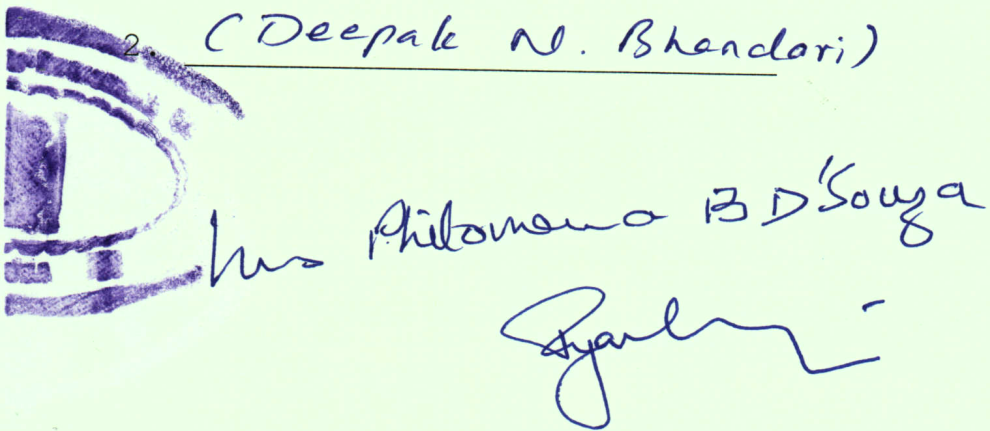 2. (Deepak N. Bhandari)
Mrs Philomena B D'Souza